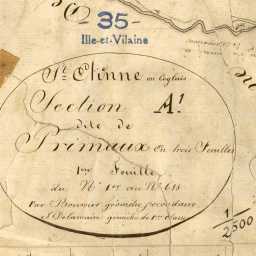 35
Ille-et-Vilaine
St. Etienne en Coglais
Section A1
dite de
Primaux en trois Feuilles
1ere Feuille
du No 1er au No 455
Par
géomètre
St Delamaire géomètre de 1ere classe
1/2500